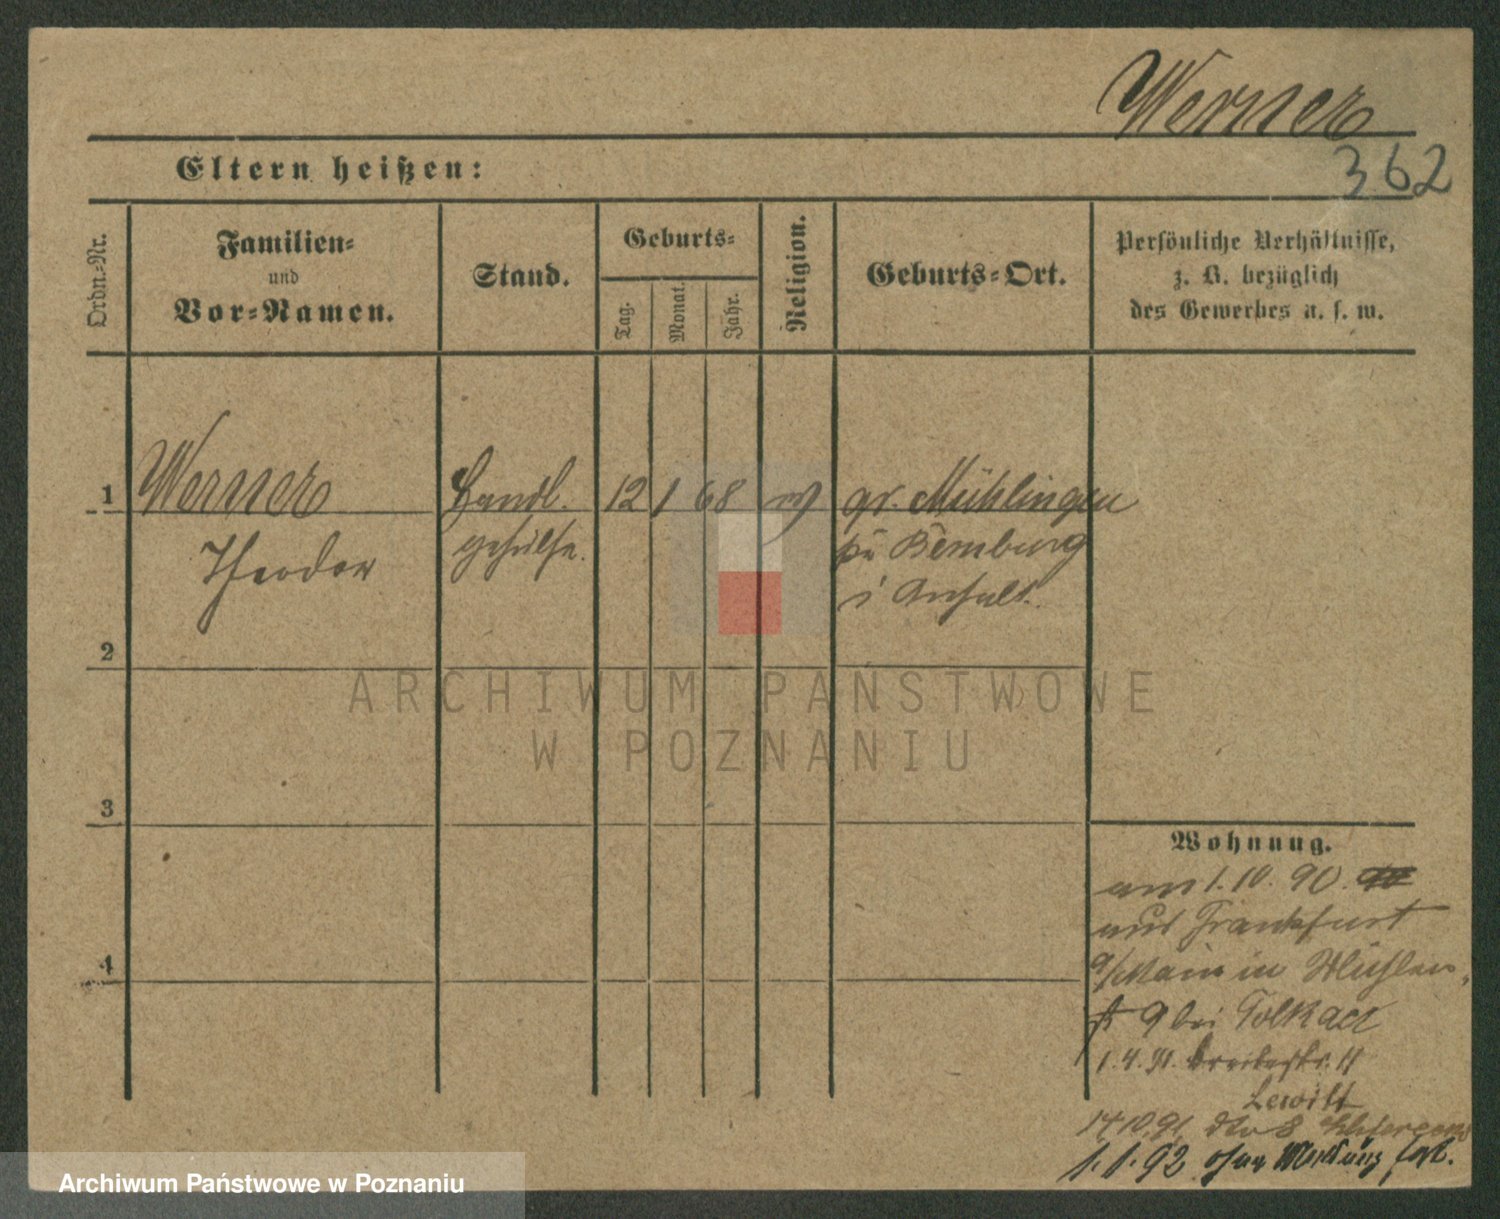 Werner
362
Eltern heißen:
Ordn.-Nr.
Familien-
und
Vor-Namen.
Stand.
Geburts-
Tag.
Monat.
Jahr.
Religion.
Geburts-Ort.
Persönliche Verhältnisse,
z. B. bezüglich
des Gewerbes u. s. w.
1
Werner
Theodor
Handl.
gehülfe.
12 1 68
gr. Mühlingen
Bernburg
i Anhalt.
2
ARCHIWUM PAŃSTWOWE
W POZNANIU
3
4
Wohnung.
am 1.10.90.
aus Frankfurt
a/Main in Mühlen-
st 9 bei Tolkacz
1.4.91. Breitestr. 11
Lewitt
14.10.91 dto 8
1.1.92 ohne Meldung fort.
Archiwum Państwowe w Poznaniu